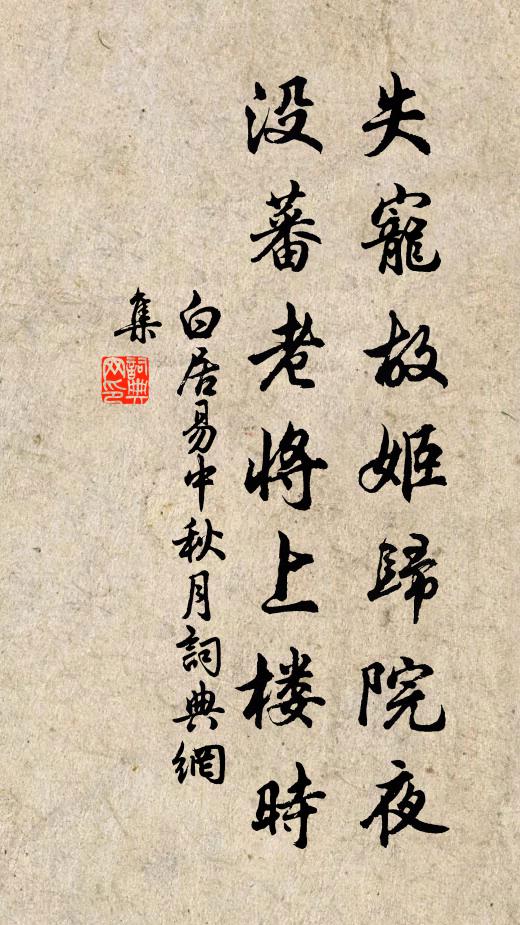 失寵故姬歸院夜
没蕃老将上楼時
白居易中秋月詞典網
集
詞典网印